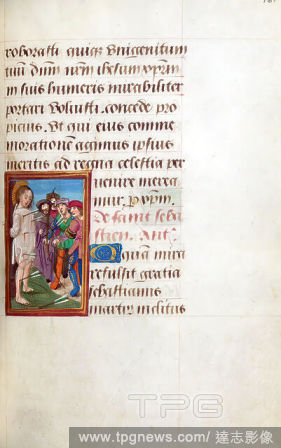 roborasti quiqꝫ Unigenitum
tuū dn̄m nr̄m ihesum xp̄m
in suis humeris mirabiliter
portari voluisti. concede pro
picius. Vt qui eius comme
morationē agimus ipsius
meritis ad regna celestia per
uenire merea
mur. p xp̄m.
De saint seba
stien. Ant.
O quā mira
refulsit gratia
sebastianus
martir inclitus
TPG
www.tpgnews.com/達志影像